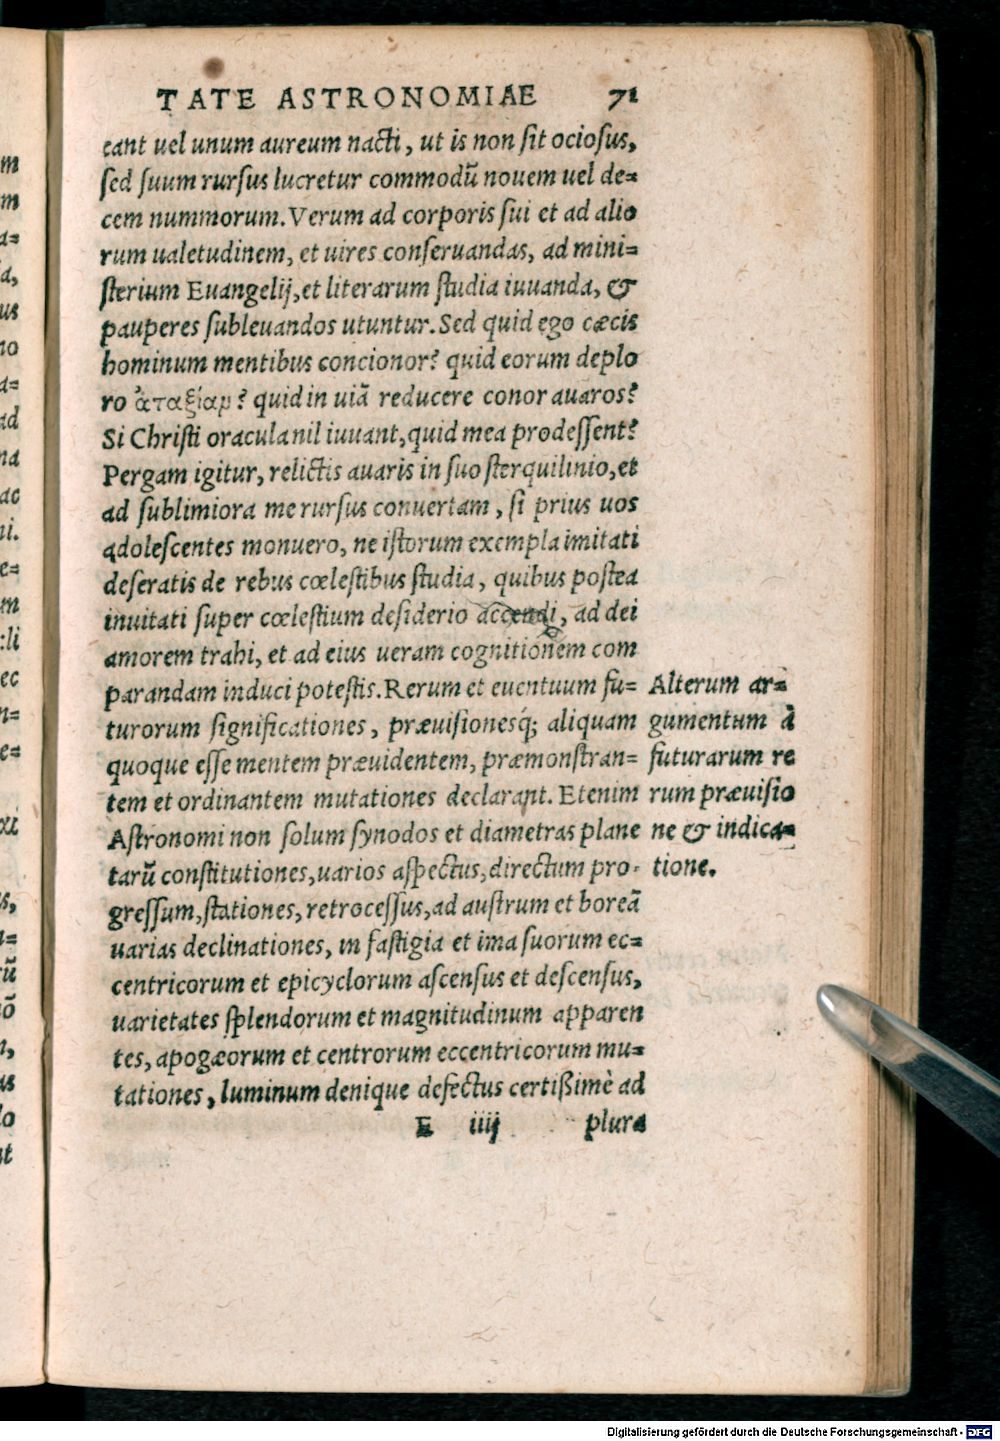 TATE ASTRONOMIAE 71
eant uel unum aureum nacti, ut is non sit ociosus,
sed suum rursus lucretur commodũ nouem uel de=
cem nummorum. Verum ad corporis sui et ad alio
rum ualetudinem, et uires conseruandas, ad mini=
sterium Euangelij, et literarum studia iuuanda, &
pauperes subleuandos utuntur. Sed quid ego cæcis
hominum mentibus concionor? quid eorum deplo
ro ἀταξίαμ? quid in uiã reducere conor auaros?
Si Christi oracula nil iuuant, quid mea prodessent?
Pergam igitur, relictis auaris in suo sterquilinio, et
ad sublimiora me rursus conuertam, si prius uos
adolescentes monuero, ne istorum exempla imitati
deseratis de rebus cœlestibus studia, quibus postea
inuitati super cœlestium desiderio accendi, ad dei
amorem trahi, et ad eius ueram cognitionem com
parandam induci potestis. Rerum et euentuum fu=
turorum significationes, præuisionesq́; aliquam
quoque esse mentem præuidentem, præmonstran=
tem et ordinantem mutationes declarant. Etenim
Astronomi non solum synodos et diametras plane
tarũ constitutiones, uarios aspectus, directum pro-
gressum, stationes, retrocessus, ad austrum et boreã
uarias declinationes, in fastigia et ima suorum ec=
centricorum et epicyclorum ascensus et descensus,
uarietates splendorum et magnitudinum apparen
tes, apogæorum et centrorum eccentricorum mu=
tationes, luminum denique defectus certißimè ad
E iiij plura
Alterum ar=
gumentum à
futurarum re
rum præuisio
ne & indica=
tione.
Digitalisierung gefördert durch die Deutsche Forschungsgemeinschaft - DFG